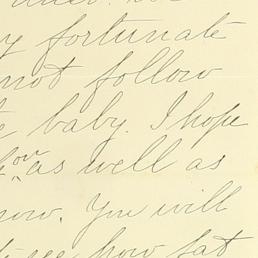 y fortunate
not follow
baby. I hope
you as well as
now. You will
see how fat